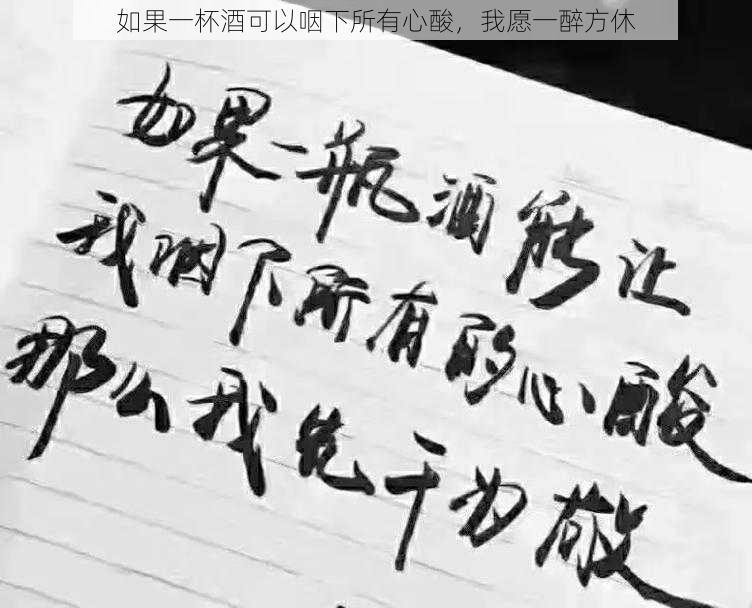 如果一杯酒可以咽下所有心酸，我愿一醉方休
如果一瓶酒能让
我咽下所有的心酸
那么我先干为敬